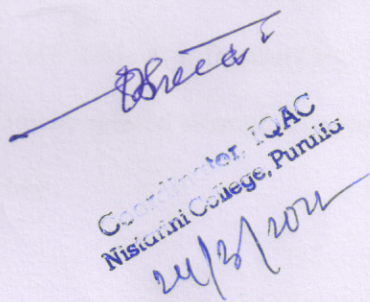 Coordinator, IQAC
Nistarini College, Purulia
24/3/2022